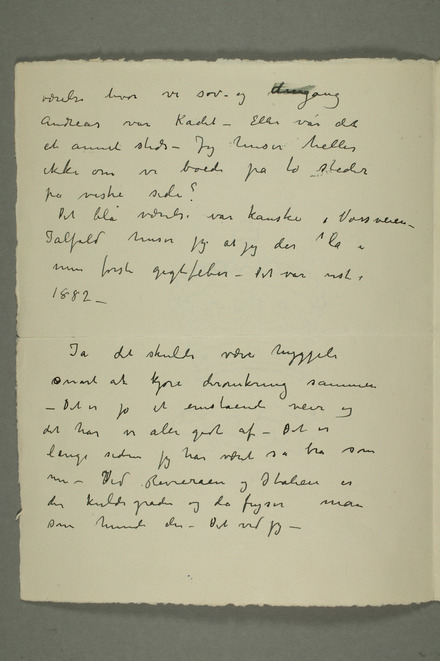 værelse hvor vi sov – og dengang
Andreas var Kadet – Eller var det
et annet steds – Jeg husker heller
ikke om vi boede på to steder
på vestre side?
Det blå værelse var kanske i Vossveien –
Ialfald husker jeg at jeg der lå i
min første gigtfeber – Det var vist i
1882 –
Ja det skulde være hyggeli
snart at kjøre omkring sammen
– Det er jo et enestående veir og
det har vi alle godt af – Det er
længe siden jeg har været så bra som
nu – Ved Rivieraen og Italien er
der kuldegrader og da fryser man
som hund der – Det ved jeg –